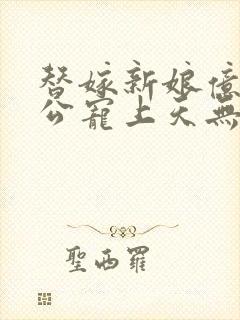 替嫁新娘億
公寵上天無
聖西羅